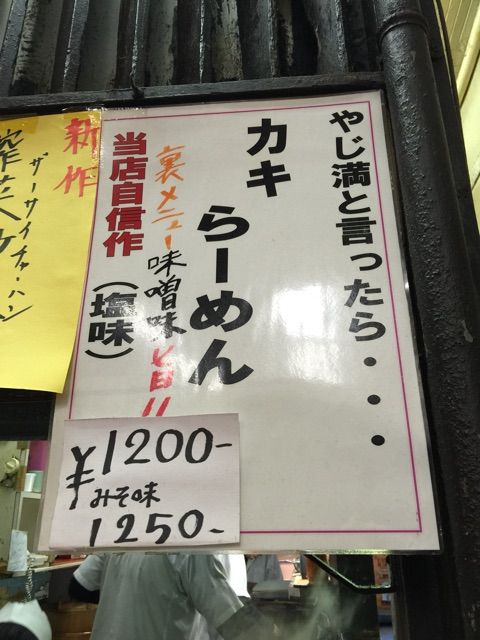 やじ満と言ったら・・・
カキ
らーめん
裏メニュー味噌味
当店自信作
(塩味)
¥1200-
みそ味
1250-
新作
ザーサイチャーハン